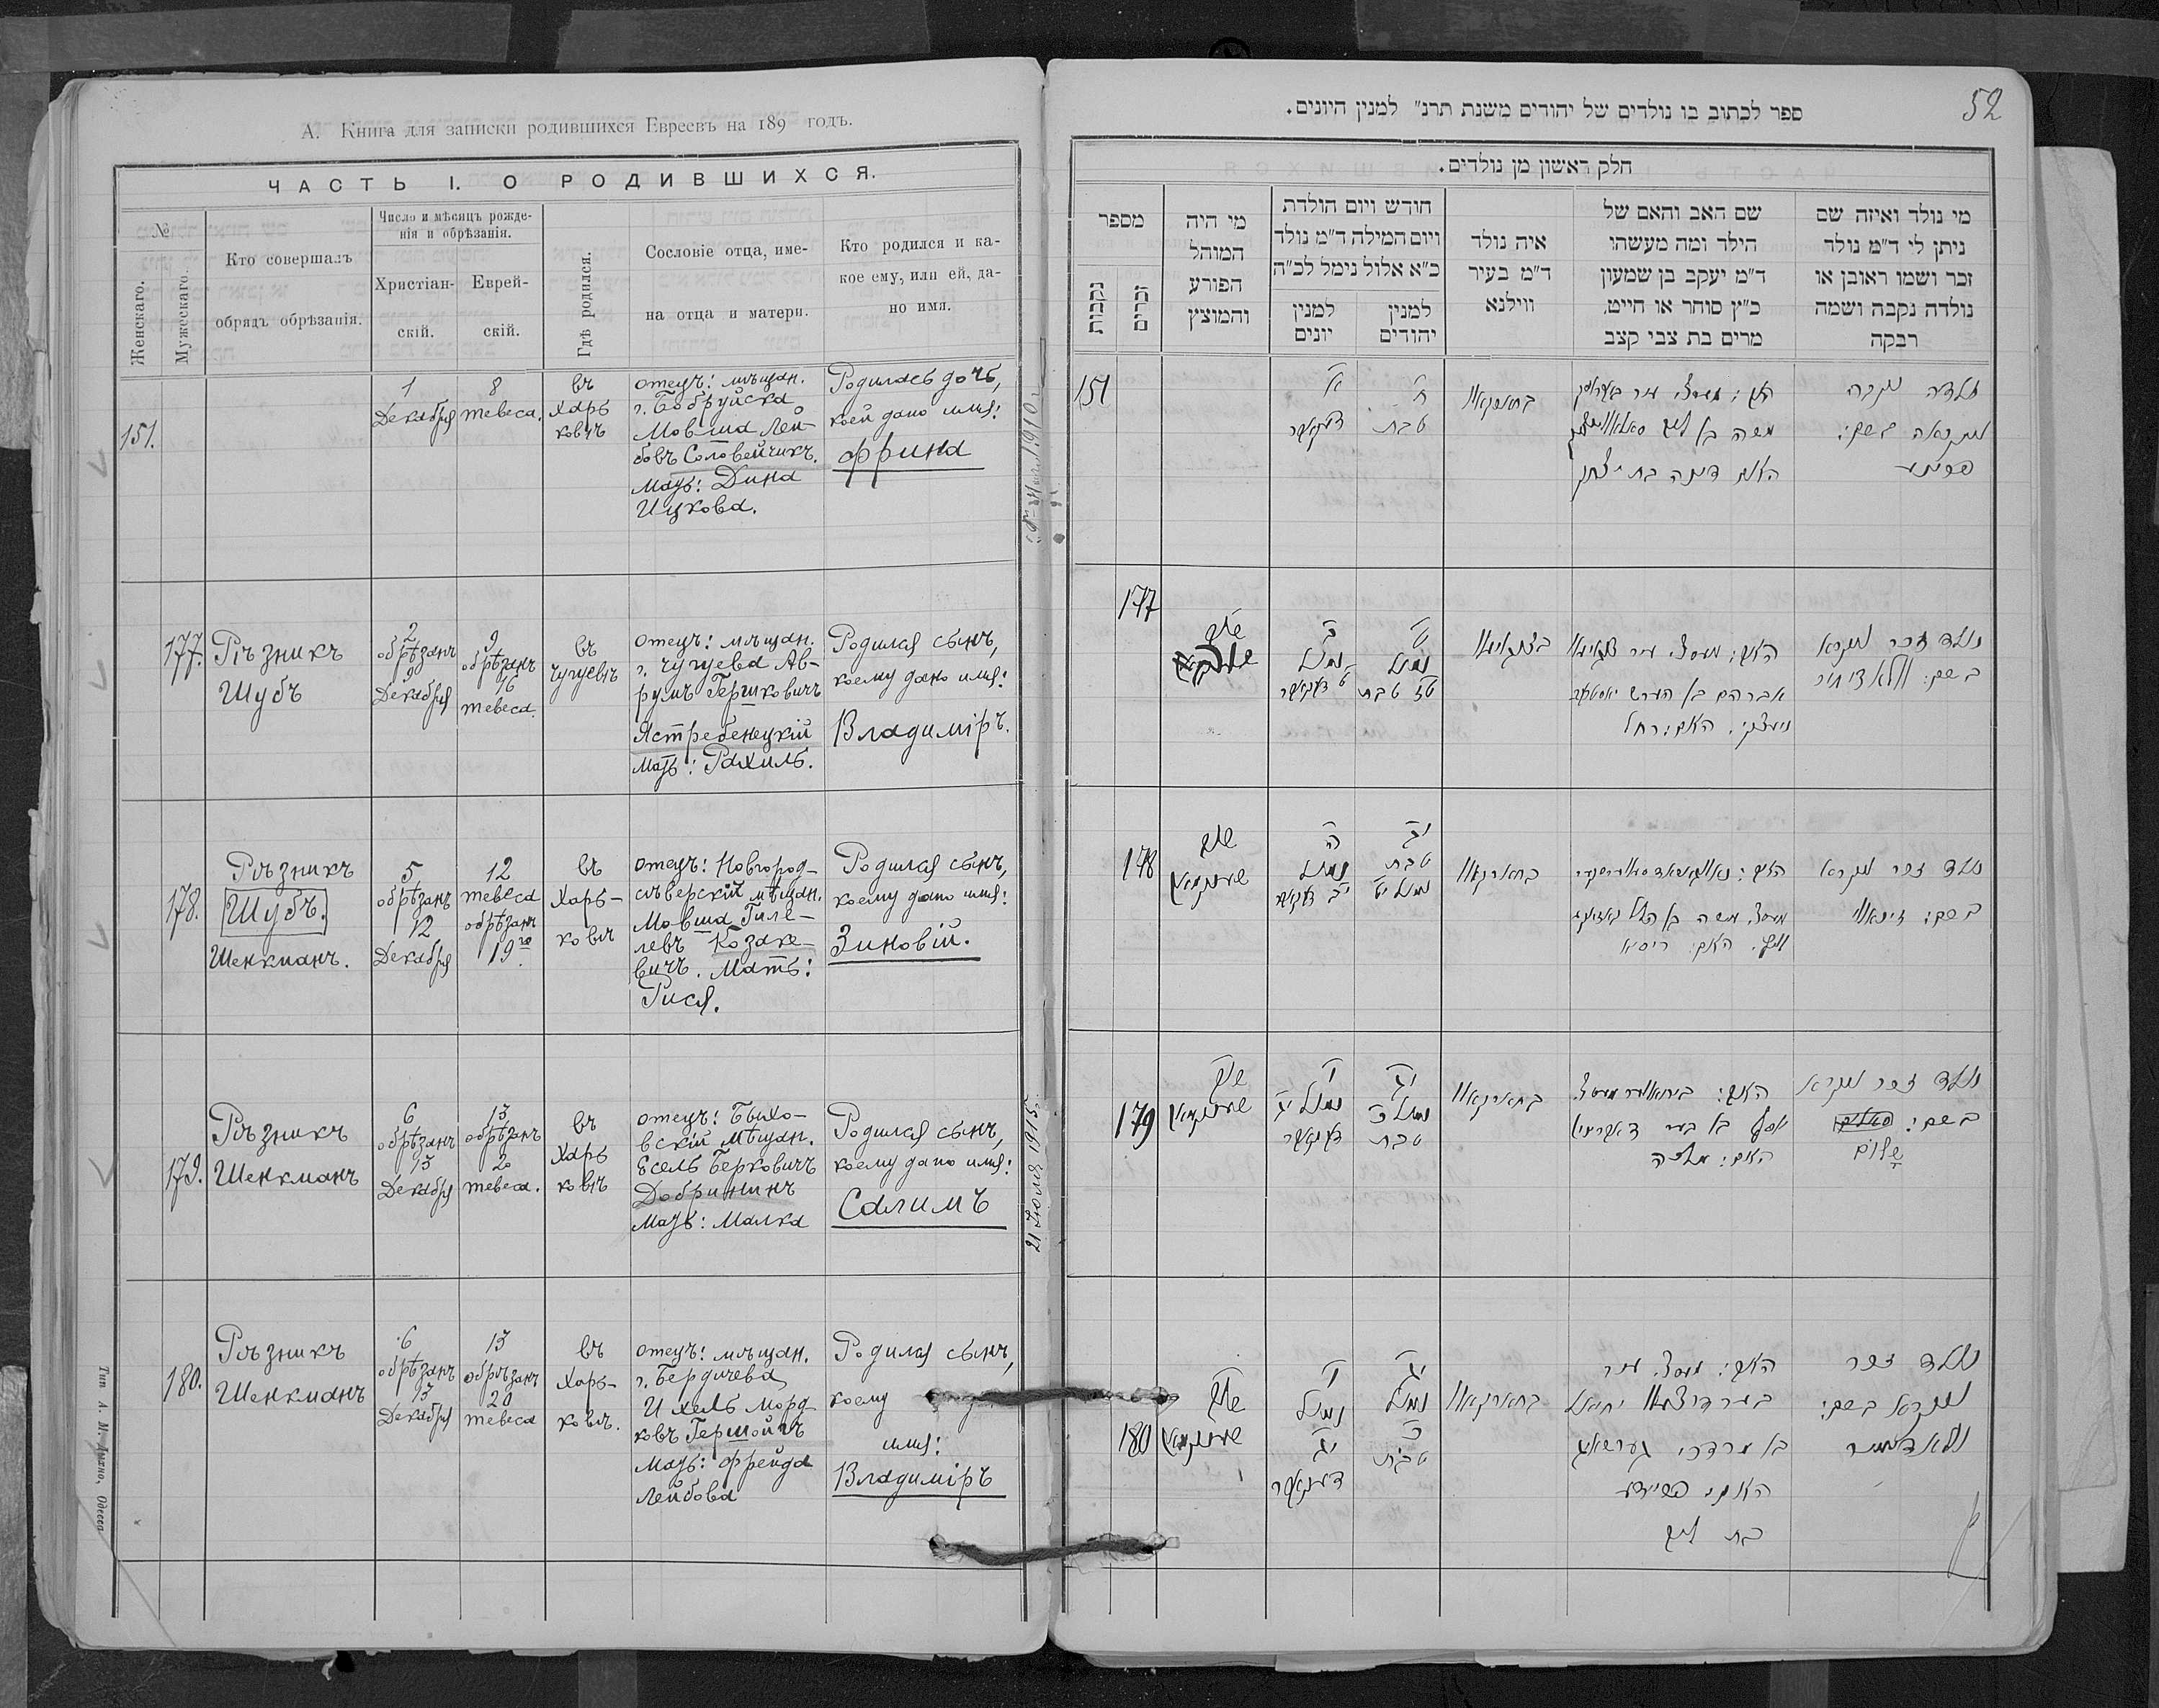 А. Книга для записки родившихся Евреевъ на 189 годъ.
ЧАСТЬ I. О РОДИВШИХСЯ.
№
Женскаго.
Мужескаго.
Кто совершалъ
обрядъ обрѣзанія.
Число и мѣсяцъ рожде-
нія и обрѣзанія.
Христіан-
скій.
Еврей-
скій.
Гдѣ родился.
Сословіе отца, име-
на отца и матери.
Кто родился и ка-
кое ему, или ей, да-
но имя.
151.
1
Декабря
8
тевеса.
въ
Харь
ковѣ
отецъ: мѣщан.
г. Бобруйска
Мовша Лей-
бовъ Соловейчикъ.
Мать: Дина
Ицкова.
Родилась дочь,
коей дано имя:
Фрина
177.
Рѣзникъ
Шубъ
2
обрѣзанъ
9
Декабря
9
обрѣзанъ
16
тевеса.
въ
Чугуевѣ
отецъ: мѣщан.
г. Чугуева Ав-
румъ Гершковичъ
Ястребенецкій
мать: Рахиль.
Родился сынъ,
коему дано имя:
Владиміръ.
178.
Рѣзникъ
Шубъ.
Шенкманъ.
5
обрѣзанъ
12
Декабря
12
тевеса
обрѣзанъ
19го
въ
Харь-
ковѣ
отецъ: Новгород-
сѣверскій мѣщан.
Мовша Гиле-
левъ Козаке-
вичъ. Мать:
Рися.
Родился сынъ,
коему дано имя:
Зиновій.
179.
Рѣзникъ
Шенкманъ
6
обрѣзанъ
13
Декабря
13
обрѣзанъ
20
тевеса.
въ
Харь
ковѣ
отецъ: Быхо-
вскій мѣщан.
Есель Берковичъ
Добрининъ
мать: Малка
Родился сынъ,
коему дано имя:
Салимъ
180.
Рѣзникъ
Шенкманъ
6
обрѣзанъ
13
Декабря
13
обрѣзанъ
20
тевеса
въ
Харь-
ковѣ.
отецъ: мѣщан.
г. Бердичева
Ихель Морд-
ковъ Гершойгъ
мать: Фрейда
Лейбова
Родился сынъ,
коему
имя:
Владиміръ
Тип. А. М. Дыхно, Одесса
21 Июля 1915
52
ספר לכתוב בו נולדים של יהודים משנת תרנ״ למנין היונים.
חלק ראשון מן נולדים.
מספר
נקבות
זכרים
מי היה
המוהל
הפורע
והמוצץ
חודש ויום הולדת
ויום המילה ד״מ נולד
כ״א אלול נימל לכ״ה
למנין
יונים
למנין
יהודים
איה נולד
ד״מ בעיר
ווילנא
שם האב והאם של
הילד ומה מעשהו
ד״מ יעקב בן שמעון
כ״ץ סוחר או חייט,
מרים בת צבי קצב
מי נולד ואיזה שם
ניתן לי ד״מ נולד
זכר ושמו ראובן או
נולדה נקבה ושמה
רבקה
151
א
דעקאבר
ח
טבת
בחארקאוו
משה בן לייב
האם דינה בת יצחק
נולדה נקבה
ונקראה בשם:
177
שוב
ב
נימול
ט דעקאבר
ט
נימול
טז טבת
אברהם בן הערש
האם: רחל
נולד זכר ונקרא
בשם: וולאדימיר
178
שוב
שענקמאן
ה
נימול
יב דעקאבר
יב
טבת
נימול יט
בחארקאוו
האם: ריסיא
נולד זכר ונקרא
בשם: זינאווי
179
שוב
שענקמאן
ו
נימול יג
דעקאבר
יג
נימול כ
טבת
בחארקאוו
האם: מלכה
נולד זכר ונקרא
בשם:
שלום
180
שוב
שענקמאן
ו
נימול
יג
דעקאבר
יג
נימול
כ
טבת
בחארקאוו
בן מרדכי
האם: פריידע
בת לייב
נולד זכר
ונקרא בשם:
וולאדימיר